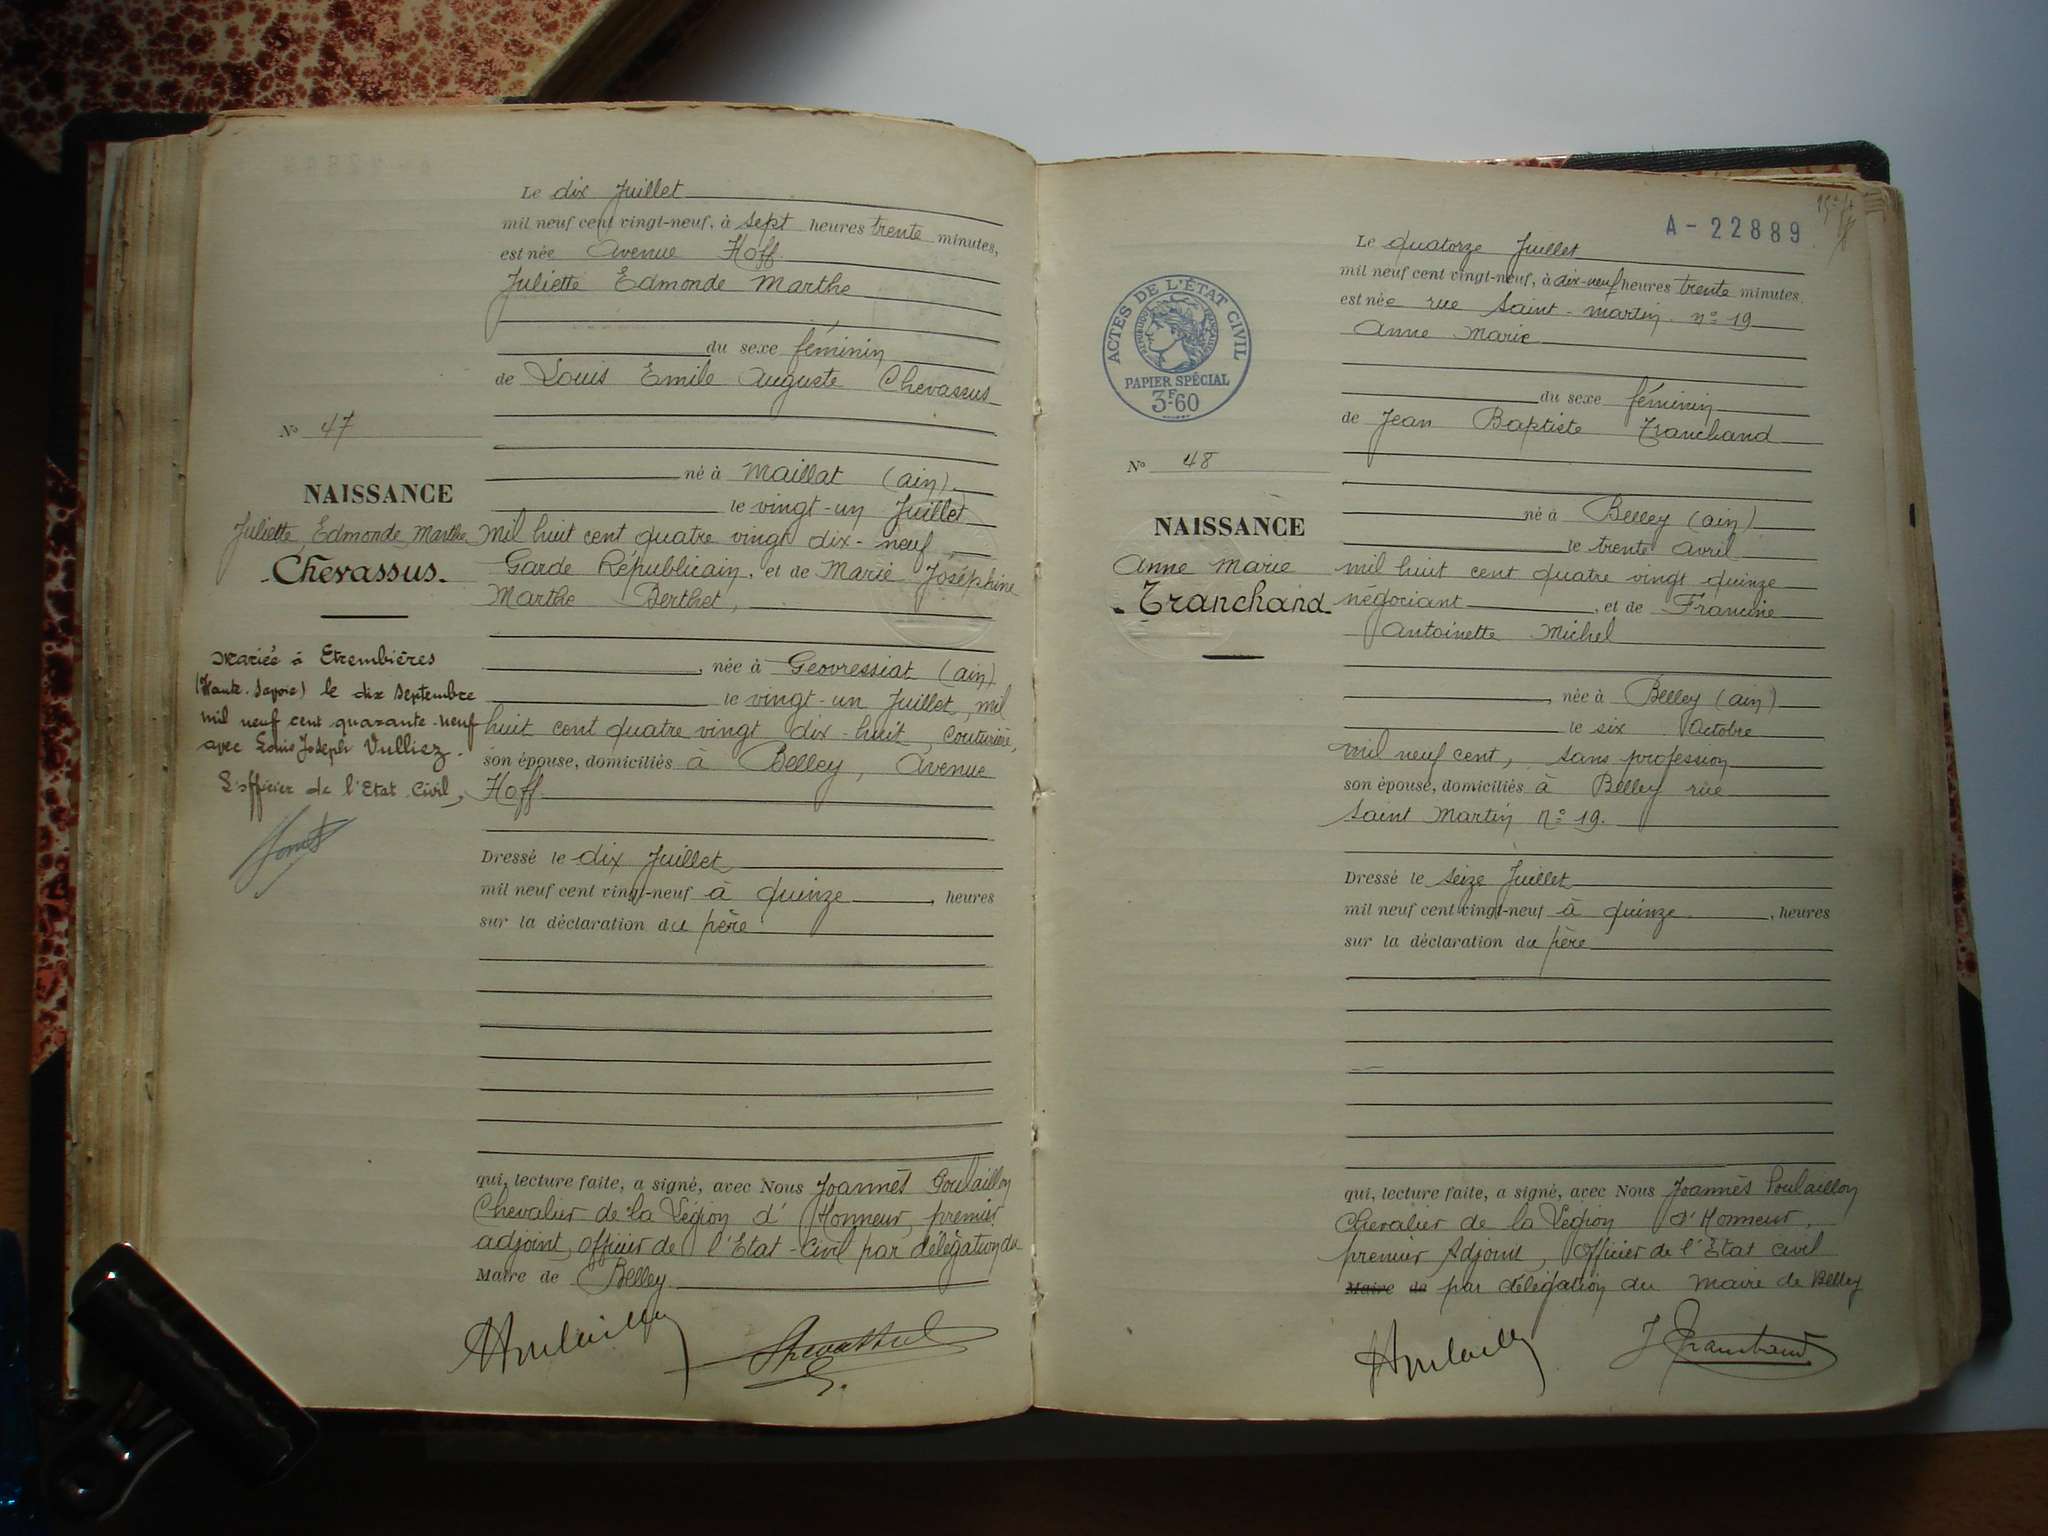 Le dix Juillet
mil neuf cent vingt-neuf, à sept heures trente minutes,
est née Avenue Hoff
Juliette Edmonde Marthe
du sexe féminin
de Louis Emile Auguste Chevassus
N° 47
né à Maillat (ain)
le vingt-un Juillet
NAISSANCE
Juliette Edmonde Marthe
Chevassus
mil huit cent quatre vingt dix-neuf
Garde Républicain, et de Marie Joséphine
Marthe Berthet,
née à Geovressiat (ain)
le vingt-un Juillet, mil
huit cent quatre vingt dix-huit, couturière,
son épouse, domiciliés à Belley, Avenue
Hoff.
Mariée à Etrembières
(Haute-Savoie) le dix septembre
mil neuf cent quarante-neuf
avec Louis Joseph Vulliez.
L'officier de l'Etat Civil,
Dressé le dix Juillet
mil neuf cent vingt-neuf à quinze , heures
sur la déclaration du père
qui, lecture faite, a signé, avec Nous Joannès Poulaillon
Chevalier de la Légion d'Honneur, premier
adjoint, officier de l'Etat-Civil par délégation du
Maire de Belley
A-22889
Le quatorze Juillet
mil neuf cent vingt-neuf, à dix-neuf heures trente minutes,
est née rue Saint-Martin n° 19
Anne Marie
ACTES DE L'ÉTAT CIVIL
RÉPUBLIQUE FRANÇAISE
PAPIER SPÉCIAL
3F60
du sexe féminin
de Jean Baptiste Tranchand
N° 48
né à Belley (ain)
le trente Avril
NAISSANCE
Anne Marie
Tranchand
mil huit cent quatre vingt quinze
négociant , et de Francine
Antoinette Michel
née à Belley (ain)
le six Octobre
mil neuf cent, sans profession
son épouse, domiciliés à Belley rue
Saint Martin n° 19.
Dressé le seize Juillet
mil neuf cent vingt-neuf à quinze , heures
sur la déclaration du père
qui, lecture faite, a signé, avec Nous Joannès Poulaillon
Chevalier de la Légion d'Honneur,
premier Adjoint, officier de l'Etat civil
Maire de par délégation du Maire de Belley
J Tranchand